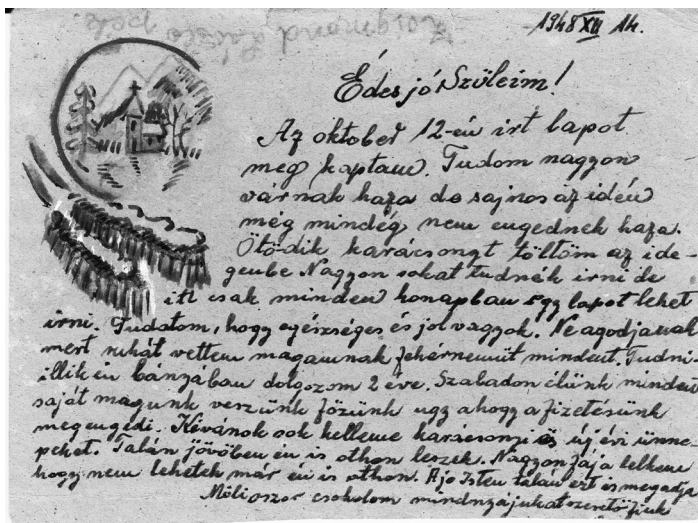 Zsigmond László
1948 XII 14.
Édes jó Szüleim!
Az oktober 12-én irt lapot
meg kaptam. Tudom nagyon
várnak haza de sajnos az idén
még mindég nem engednek haza.
Ötödik karácsonyt töltöm az ide-
genbe Nagyon sokat tudnék irni de
itt csak minden honapban egy lapot lehet
irni. Tudatom, hogy egészséges és jol vagyok. Ne agodjanak
mert ruhát vettem magamnak fehérnemüt mindent. Tudni-
illik én bányában dolgozom 2 éve. Szabadon élünk minden
saját magunk veszünk fözünk ugy ahogy a fizetésünk
megengedi. Kivanok sok kelleme karácsonyi és új évi ünne-
peket. Talán jövöben én is othon leszek. Nagyon fája lelkem
hogy nem lehetek már én is othon. A jo Isten talán ezt is megadja
Millioszor csokolom mindnyájukat szeretö fiuk